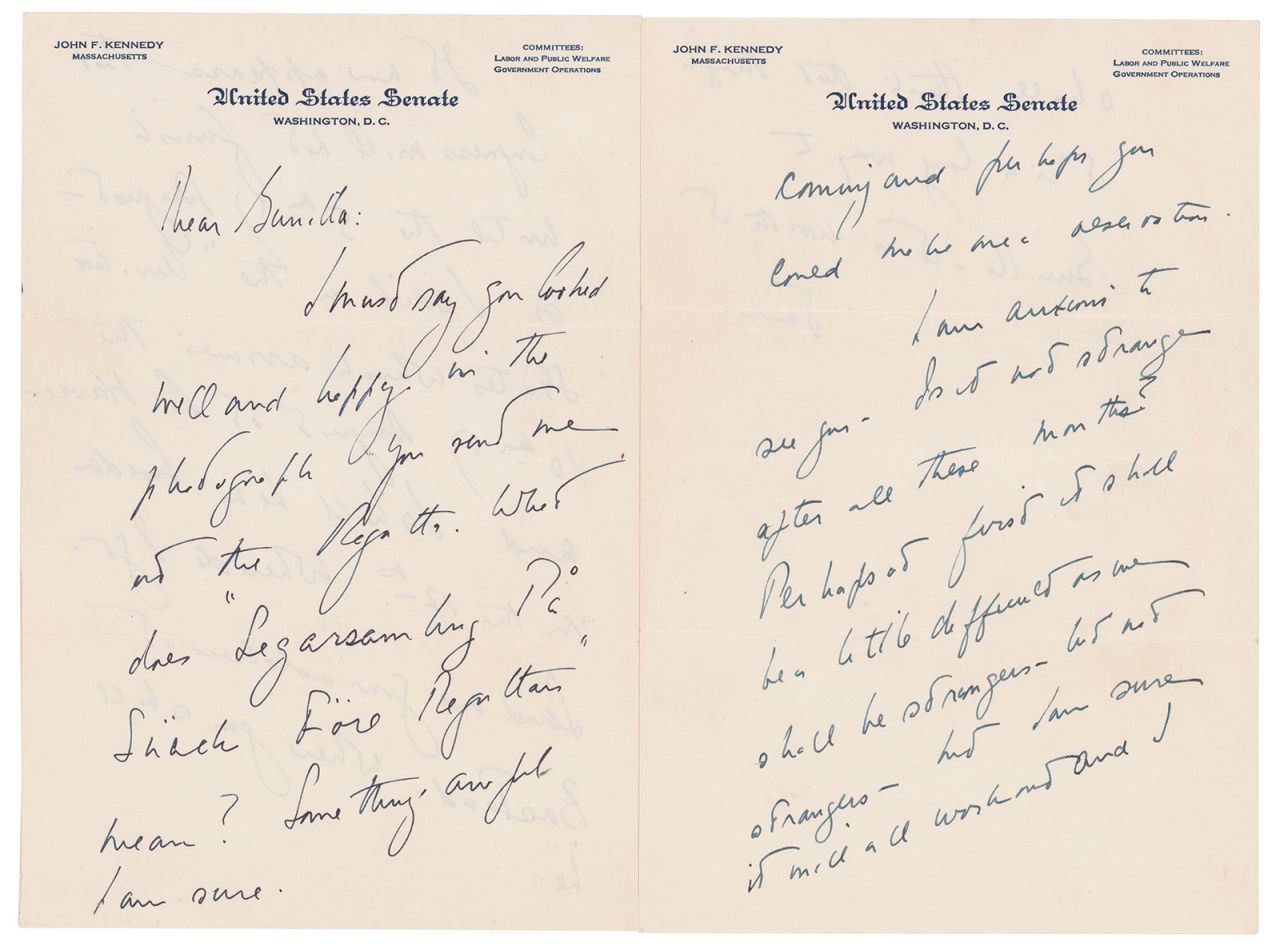 JOHN F. KENNEDY
MASSACHUSETTS
COMMITTEES:
LABOR AND PUBLIC WELFARE
GOVERNMENT OPERATIONS
United States Senate
WASHINGTON, D. C.
Dear Gunilla:
I must say you looked
well and happy in the
photograph you send me
at the Regatta. What
does "Segarsambling På
Snack Före Regattan"
mean? Something awful
I am sure.
JOHN F. KENNEDY
MASSACHUSETTS
COMMITTEES:
LABOR AND PUBLIC WELFARE
GOVERNMENT OPERATIONS
United States Senate
WASHINGTON, D. C.
coming and perhaps you
could make me a reservation.
I am anxious to
see you - Is it not strange
after all these months?
Perhaps at first it shall
be a little difficult as we
shall be strangers - but not
strangers - but I am sure
it will all work out and I